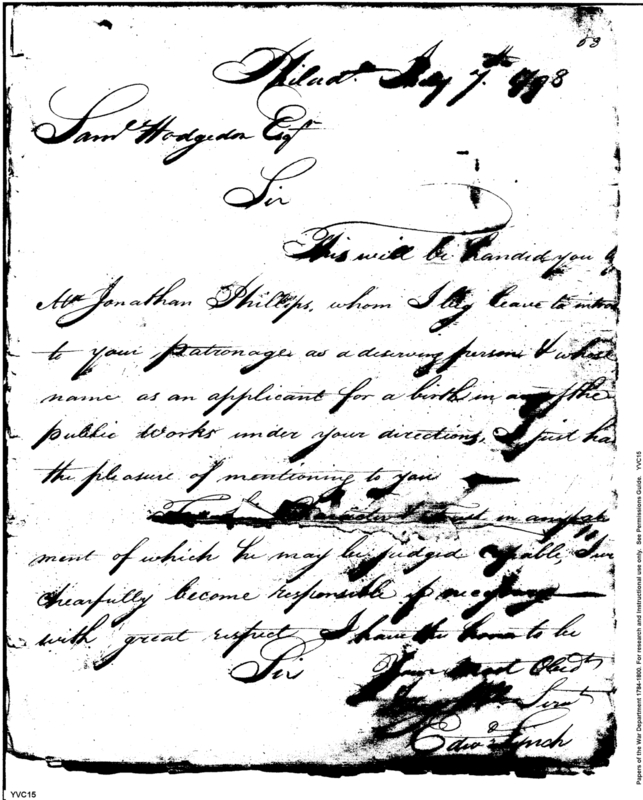 58
Philad. July 7th 1798
Saml Hodgedon Esqr
Sir
This will be handed you by
Mr Jonathan Phillips, whom I beg leave to
to your patronage as a deserving person & whose
name as an applicant for a birth in any of the
public works under your directions, I just ha
the pleasure of mentioning to you
in any
ment of which he may be judged capable, I
chearfully become responsible if necessary
with great respect I have the honor to be
Sir Your most Obedt
Servt
Edwd Lynch
YVC15
Papers of the War Department 1784-1800. For research and instructional use only. See Permissions Guide. YVC15